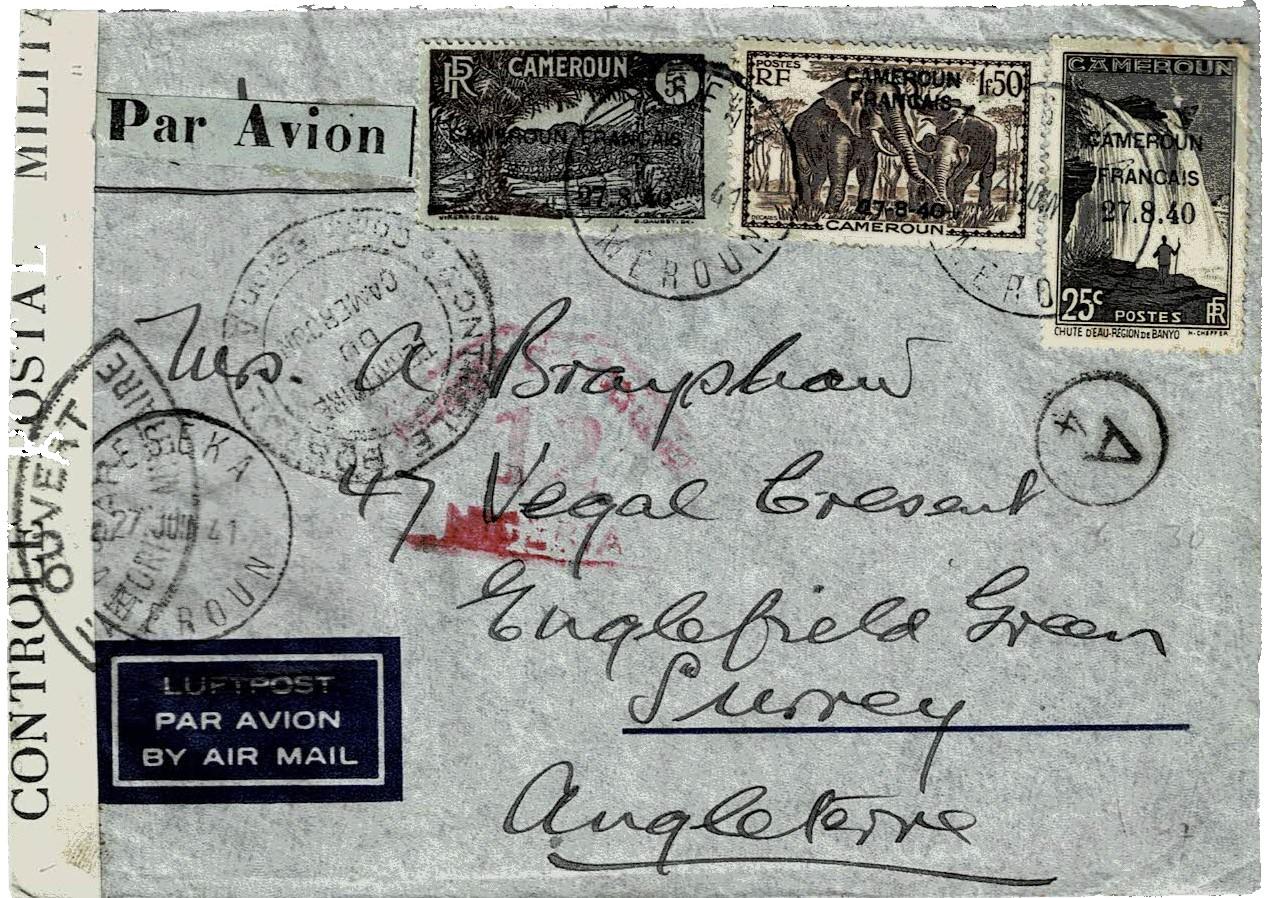 CONTROLE POSTAL MILITA
Par Avion
RF CAMEROUN 5F
CAMEROUN FRANÇAIS
27.8.40
POSTES
RF
1F50
CAMEROUN
FRANÇAIS
27-8-40
CAMEROUN
CAMEROUN
CAMEROUN
FRANÇAIS
27.8.40
25c POSTES RF
CHUTE D'EAU-RÉGION DE BANYO
MEROUN
CONTROLE POSTAL
TERRITOIRE
DU
CAMEROUN
Mrs. A Brayshaw
12
NIGERIA
A
4
47 Vegal Cresent
Englefield Green
Surrey
Angleterre
OUVERT
27 JUIN 41
EKA
EROUN
LUFTPOST
PAR AVION
BY AIR MAIL